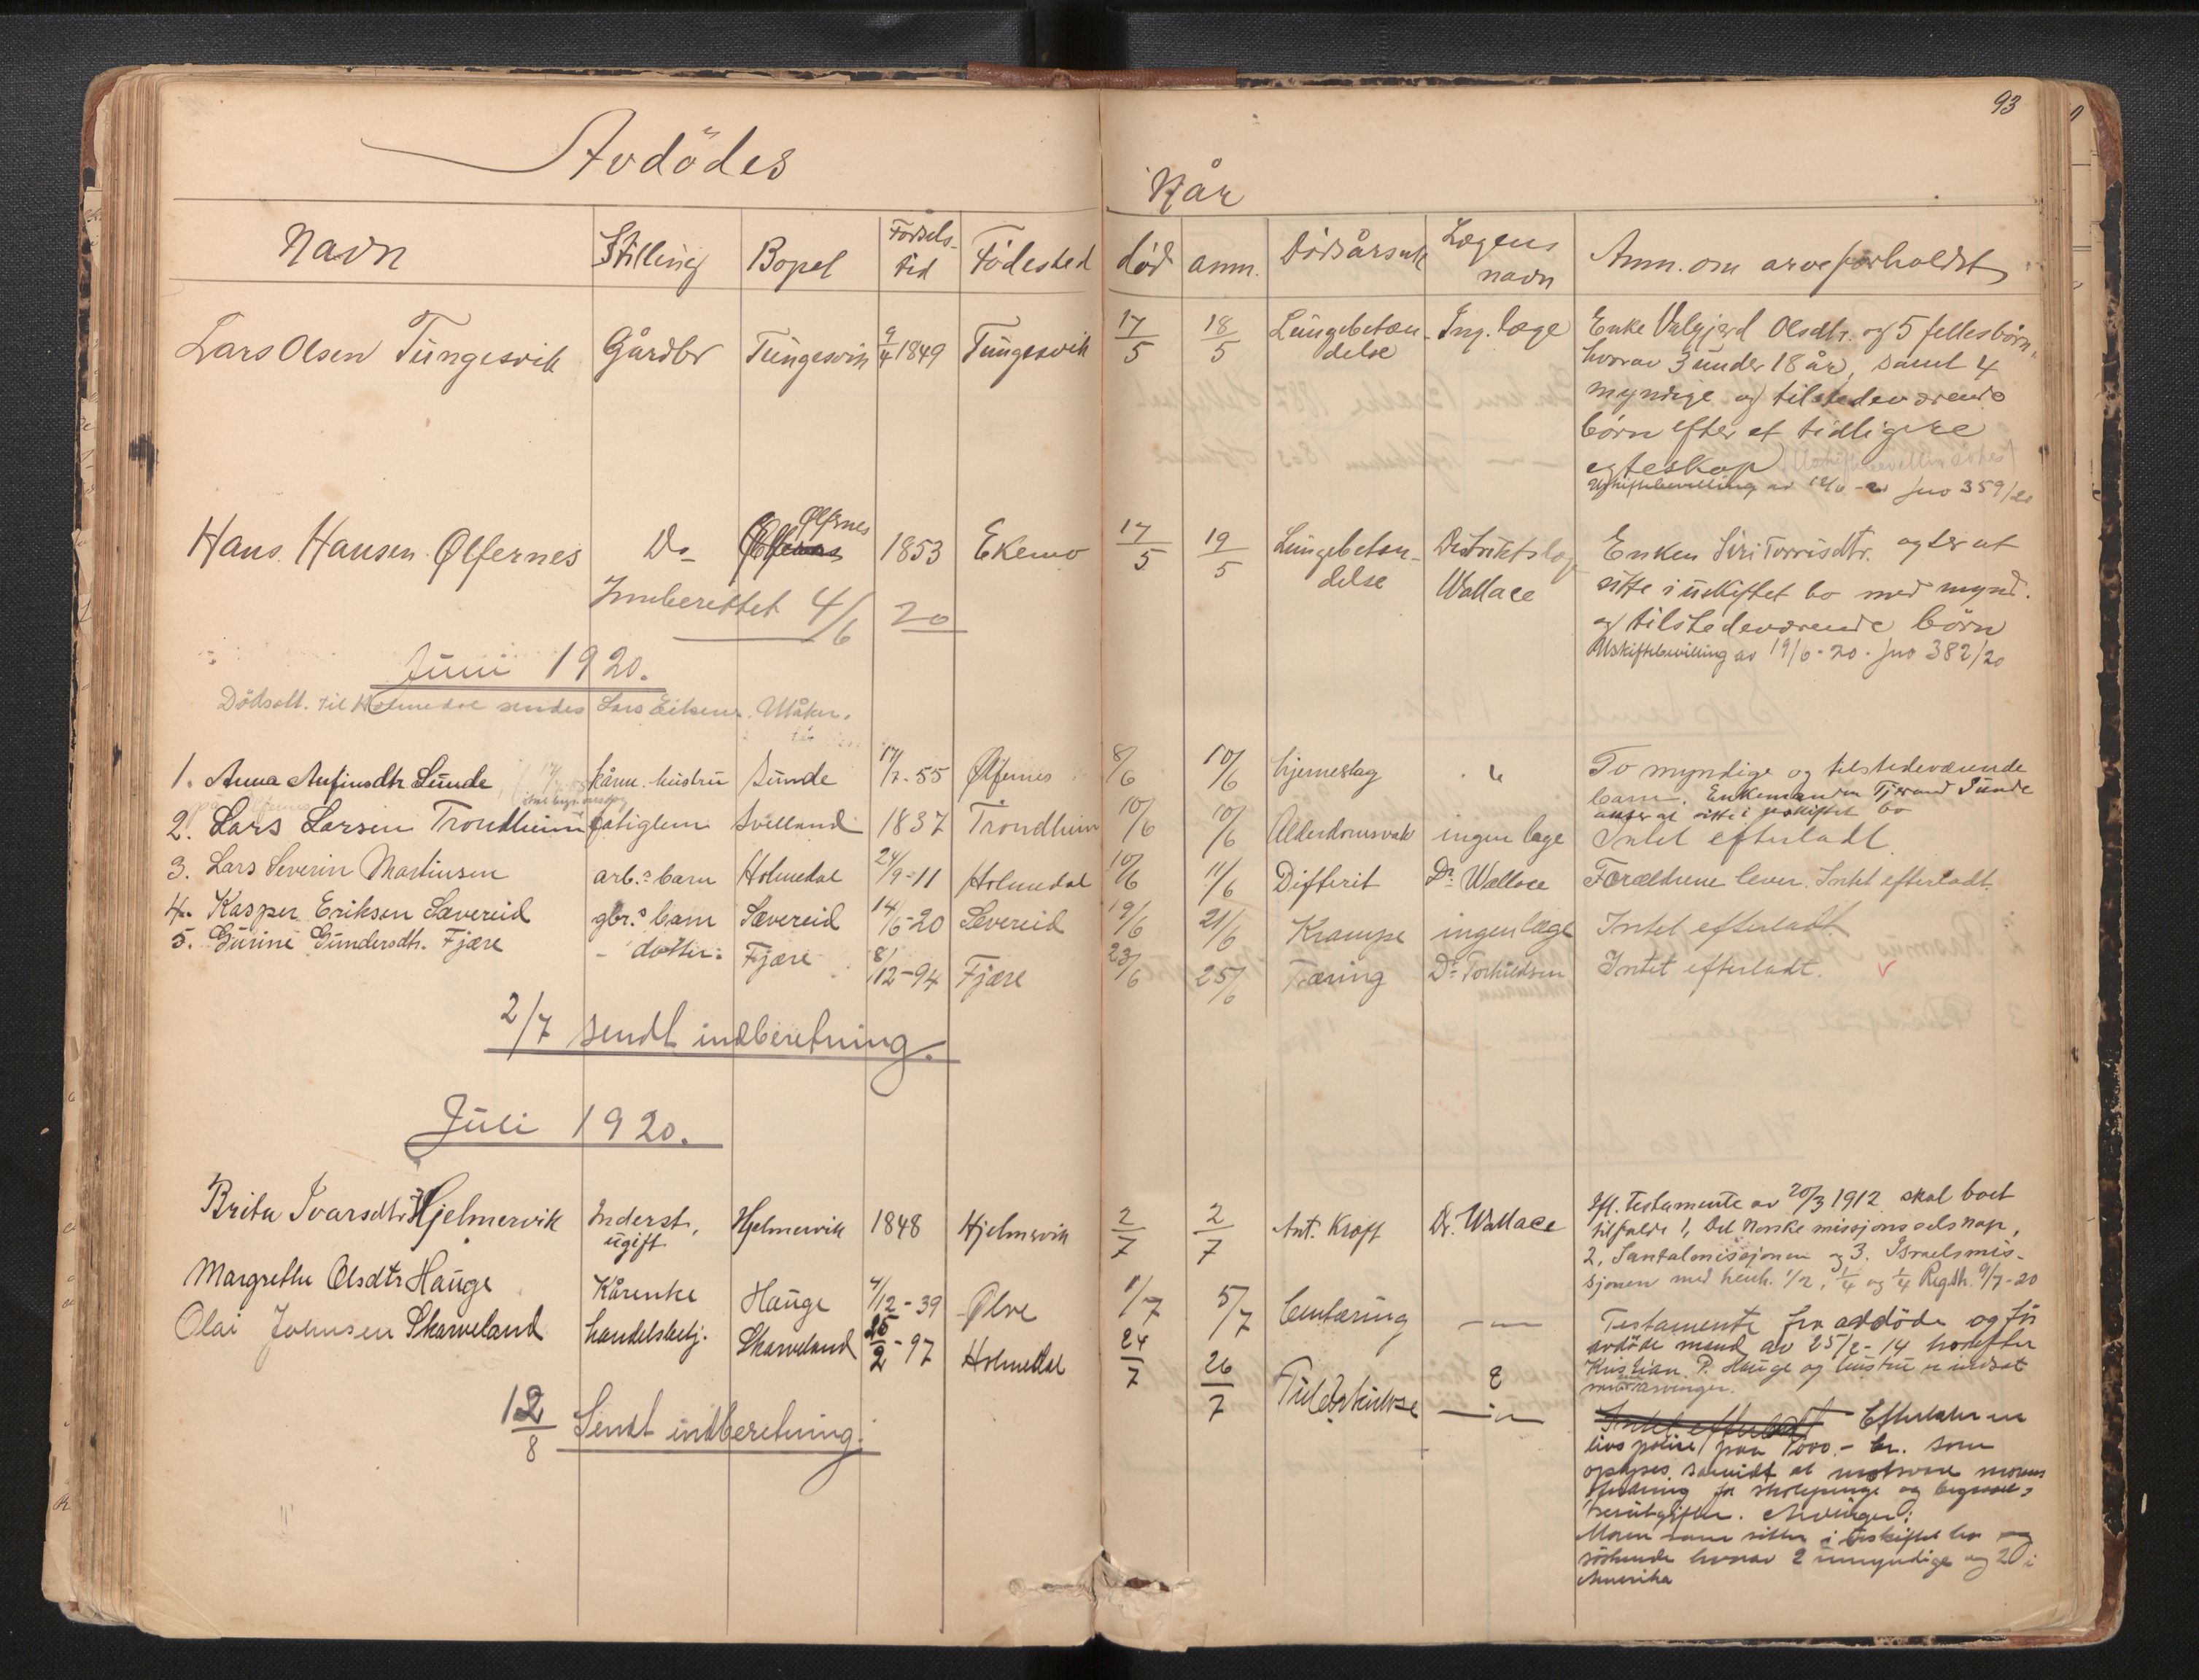 93
Avdødes
Når
Navn Stilling Bopel Fødsels-tid Fødested død anm. Dødsårsak Lægens navn Anm. om arveforholdet
Lars Olsen Tungesvik Gårdbr Tungesvik 9/4 1849 Tungesvik 17/5 18/5 Lungebetændelse Ing. læge Enke Valgjerd Olsdtr. og 5 fellesbørn,
hvorav 3 under 18 år, samt 4
myndige og tilstedeværende
børn efter et tidligere
egteskap
Uskiftebevilling av 12/6 - 20 Jno 359/20
Hans Hansen Ølfernes Do Ølfernes 1853 Ekemo 17/5 19/5 Lungebetændelse Distriktslæge Wallace Enken Siri Torrisdtr. agter at
sitte i uskiftet bo med mynd.
og tilstedeværende børn
Uskiftebevilling av 19/6 - 20 - Jno 382/20
Innberettet 4/6 20
Juni 1920.
Dödsatt. til Holmedal sendes Lars Eiksene. Utåker.
1. Anna Anfinsdtr Sunde kårm. hustru Sunde 17/7 - 55 Ølfernes 8/6 10/6 hjerneslag " To myndige og tilstedeværende
barn. Enkemanden Tjerand Sunde
akter at sitte i uskiftet bo
2. Lars Larsen Trondheim fatiglem Svelland 1837 Trondheim 10/6 10/6 Alderdomsvak ingen læge Intet efterladt
3. Lars Severin Martinsen arb.s barn Holmedal 24/9 - 11 Holmedal 10/6 11/6 Difterit Dr Wallace Forældrene lever. Intet efterladt.
4. Kasper Eriksen Sævereid gbr.s barn Sævereid 14/6 - 20 Sævereid 19/6 21/6 Krampe ingen læge Intet efterladt
5. Gurine Gundersdtr. Fjære - datter Fjære 8/12 - 94 Fjære 23/6 25/6 Tæring Dr Torkildsen Intet efterladt. v
2/7 sendt indberetning.
Juli 1920.
Brita Ivarsdtr Hjelmervik Inderst, ugift Hjelmervik 1848 Hjelmervik 2/7 2/7 Ant. Kræft Dr. Wallace Ifl. Testamente av 20/3 1912 skal boet
tilfalde 1, Det Norske missjonsselskap,
2, Santalmissjonen og 3. Israelsmis-
sjonen med henh. 1/2, 1/4 og 1/4 Reg.sk. 9/7 - 20
Margrethe Olsdtr Hauge Kårenke Hauge 4/12 - 39 Ølve 1/7 5/7 Bentæring -"- Testamente fra avdöde og för
avdöde mand av 25/2 - 14 hvorefter
Kristian P. Hauge og hustru er indsat
som arvinger.
Olai Johnsen Skarveland handelsbetj. Skarveland 25/2 - 97 Holmedal 24/7 26/7 Tuberkulose -"- Intet efterladt Efterlater en
livspolise paa 1000.- kr. som
opspises samidt at motsvare morens
fordring for skolepenge og begravel-
sesutgifter. Arvinger:
Moren som sitter i uskiftet bo og
söskende hvorav 2 umyndige og 2 i
Amerika
12/8 Sendt indberetning.